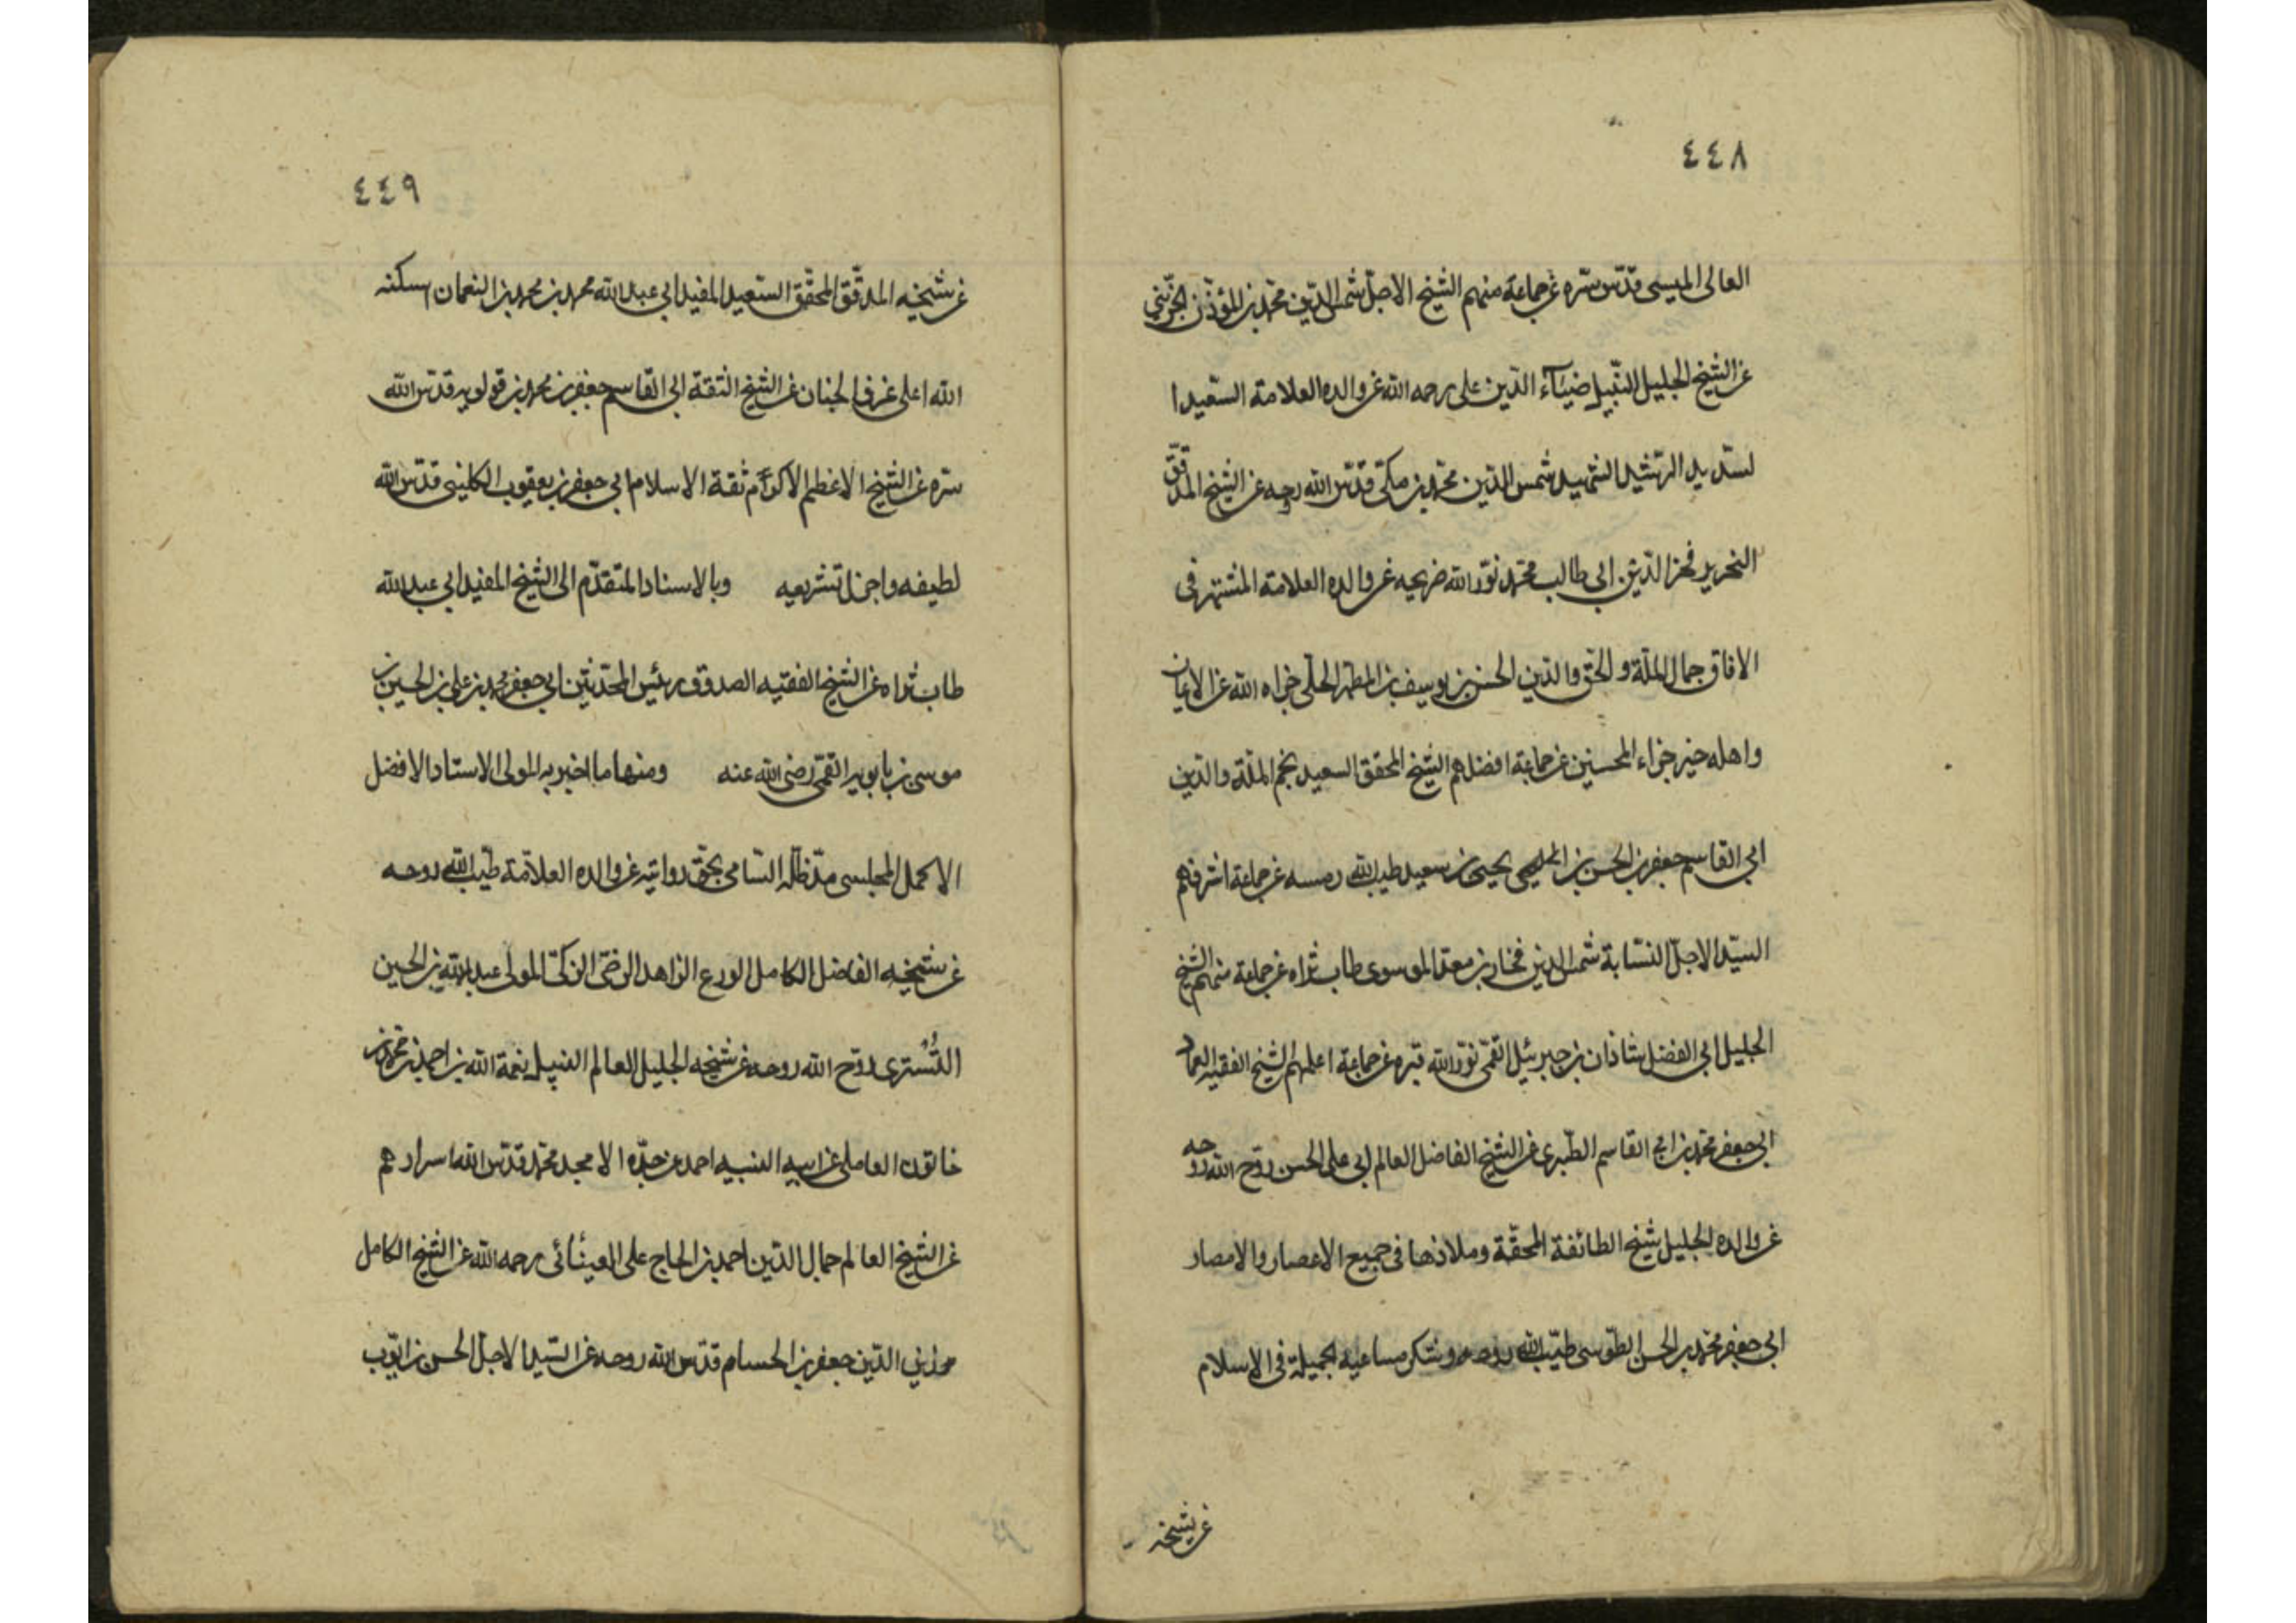 ٤٤٨
العالى الميسى قدّس سرّه عن جماعة منهم الشيخ الاجلّ شمس الدّين محمّد بن المؤذّن الجزّينى
عن الشيخ الجليل النّبيل ضيآء الدّين على رحمه الله عن والده العلامة السّعيد ا
لسّديد الرّشيد الشهيد شمس الدّين محمّد بن مكّى قدّس الله روحه عن الشيخ المدقّق
النحرير فخر الدّين ابى طالب محمّد نوّر الله ضريحه عن والده العلامة المشتهر فى
الافاق جمال الملّة و الحقّ والدّين الحسن بن يوسف بن المطهّر الحلّى جزاه الله عن الايمان
واهله خير جزاء المحسنين عن جماعة افضلهم الشيخ المحقق السعيد نجم الملّة والدّين
ابى القاسم جعفر بن الحسن بن يحيى بن سعيد طيب الله رمسه عن جماعة اشرفهم
السيّد الاجلّ النسّابة شمس الدين فخار بن معد الموسوى طاب ثراه عن جماعة منهم الشيخ
الجليل ابى الفضل شاذان بن جبرئيل القمّى نوّر الله قبره عن جماعة اعلمهم الشيخ الفقيه العماد
ابى جعفر محمّد بن ابى القاسم الطّبرى عن الشيخ الفاضل العالم ابى على الحسن روّح الله روحه
عن والده الجليل شيخ الطائفة المحقّة وملاذها فى جميع الاعصار والامصار
ابى جعفر محمّد بن الحسن الطّوسى طيّب الله روحه وشكر مساعيه الجميلة فى الاسلام
عن شيخه
٤٤٩
عن شيخه المدقّق المحقّق السّعيد المفيد ابى عبد الله محمد بن محمد بن النعمان اسكنه
الله اعلى غرف الجنان عن الشيخ الثقة ابى القاسم جعفر بن محمد بن قولويه قدّس الله
سرّه عن الشيخ الاعظم الاكرم ثقة الاسلام ابى جعفر بن يعقوب الكلينى قدّس الله
لطيفه واجزل تشريفه وبالاسناد المتقدّم الى الشيخ المفيد ابى عبد الله
طاب ثراه عن الشيخ الفقيه الصدوق رئيس المحدّثين ابى جعفر محمد بن على بن الحسين بن
موسى بن بابويه القمّى رضى الله عنه ومنها ما اخبر به المولى الاستاد الافضل
الاكمل المجلسى مدّ ظلّه السّامى بحقّ روايته عن والده العلامّة طيّب الله روحه
عن شيخه الفاضل الكامل الورع الزاهد الرضىّ الزكىّ المولى عبد الله بن الحسين
التُسترى روّح الله روحه عن شيخه الجليل العالم النبيل نعمة الله بن احمد بن محمّد بن
خاتون العاملى عن ابيه النبيه احمد عن جدّه الامجد محمّد قدّس الله اسرارهم
عن الشيخ العالم جمال الدّين احمد بن الحاج على العينائى رحمه الله عن الشيخ الكامل
زين الدّين جعفر بن الحسام قدّس الله روحه عن السّيد الاجلّ الحسن بن ايّوب